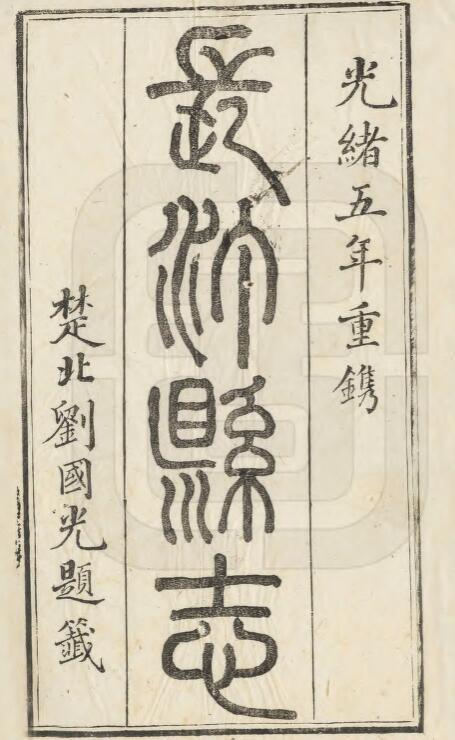 光緒五年重鎸
長汀縣志
楚北劉國光題籤